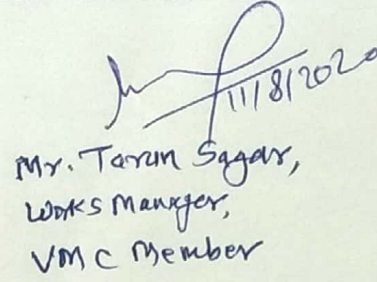 11/8/2020
Mr. Tarun Sagar,
Works Manager,
VMC Member